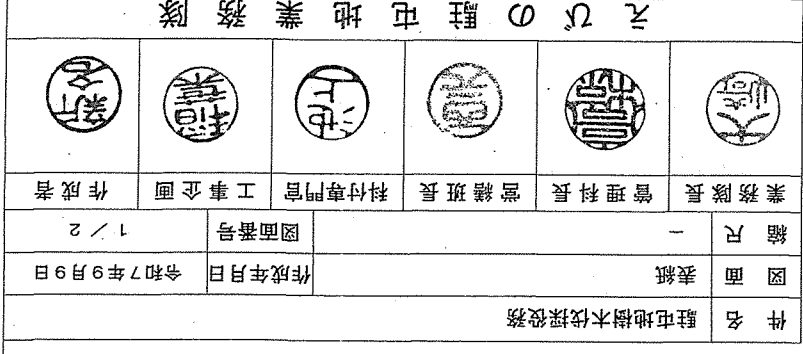 件 名 駐屯地樹木伐採役務
図 面 表紙 作成年月日 令和7年9月9日
縮 尺 － 図面番号 1／2
業務隊長 管理科長 営繕班長 科付専門官 工事企画 作成者
池上 稲葉 新名
えびの駐屯地業務隊